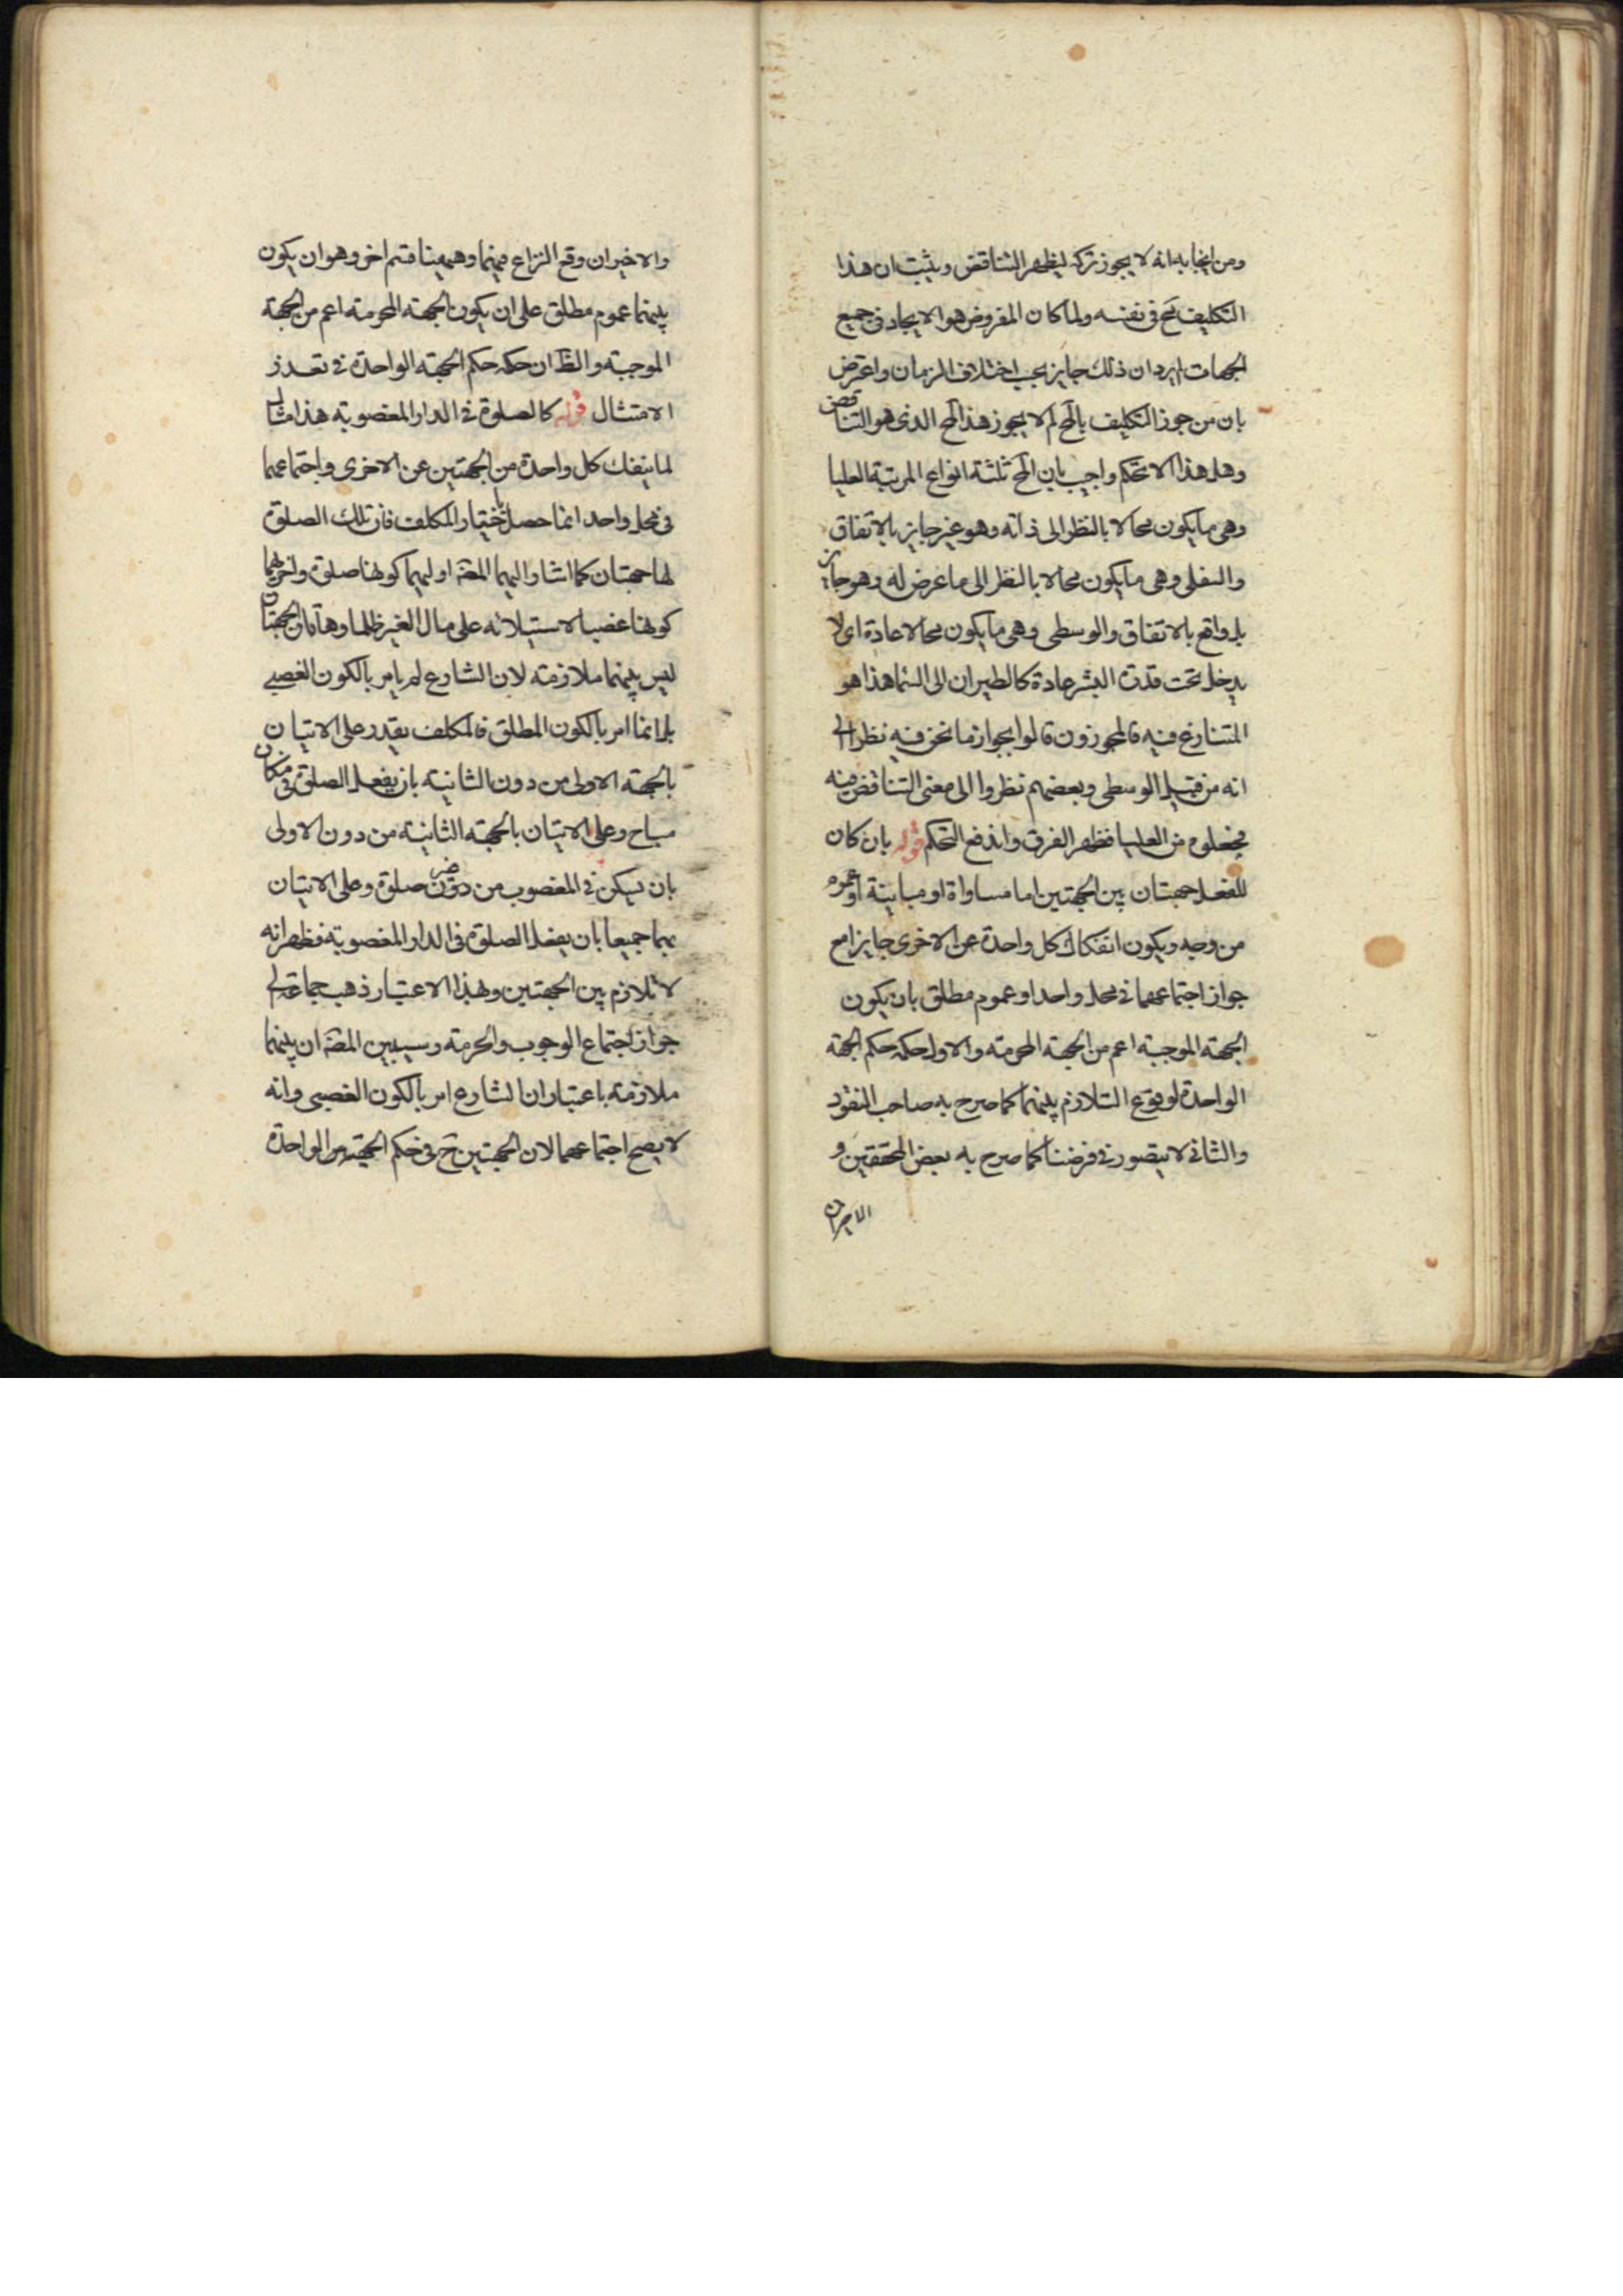 ومن ايجابه انه لا يجوز تركه ليظهر التناقض ويثبت ان هذا
التكليف مح في نفسه ولما كان المفروض هو الايجاد في جميع
الجهات ايرد ان ذلك جايز بحسب اختلاف الزمان واعترض
بان من جوز التكليف بالمح لم لا يجوز هذا المح الذى هو التناقض
وهل هذا الا تحكم واجيب بان المح ثلثة انواع المرتبة العليا
وهى ما يكون محالا بالنظر الى ذاته وهو غير جايز بالاتفاق
والسفلى وهى ما يكون محالا بالنظر الى ما عرض له وهو جايز
بل واقع بالاتفاق والوسطى وهى ما يكون محالا عادة اى لا
يدخل تحت قدرة البشر عادة كالطيران الى السما هذا هو
المتنازع فيه فالمجوزون قالوا بجواز ما نحن فيه نظرا الى
انه من قبيل الوسطى وبعضهم نظروا الى معنى التناقض منه
فجعلوه من العليا فظهر الفرق واندفع التحكم قوله بان كان
للفعل جهتان بين الجهتين اما مساواة او مباينة او عموم
من وجه ويكون انفكاك كل واحدة عن الاخرى جايزا مع
جواز اجتماعهما في محل واحد او عموم مطلق بان يكون
الجهة الموجبة اعم من الجهة المحرمة والاول حكمه حكم الجهة
الواحدة لوقوع التلازم بينهما كما صرح به صاحب النقود
والثاني لا يتصور في فرضنا كما صرح به بعض المحققين و
الاخيران
والاخيران وقع النزاع فيهما وههنا قسم اخر وهو ان يكون
بينهما عموم مطلق على ان يكون الجهة المحرمة اعم من الجهة
الموجبة والظ ان حكمه حكم الجهة الواحدة في تعذر
الامتثال قوله كالصلوة في الدار المغصوبة هذا مثال
لما ينفك كل واحدة من الجهتين عن الاخرى واجتماعهما
في محل واحد انما حصل باختيار المكلف فان تلك الصلوة
لها جهتان كما اشار اليهما المصنف اوليهما كونها صلوة واخريهما
كونها غصبا لاستيلائه على مال الغير ظلما وهاتان الجهتان
ليس بينهما ملازمة لان الشارع لم يامر بالكون الغصبي
بل انما امر بالكون المطلق فالمكلف يقدر على الاتيان
بالجهة الاولى من دون الثانية بان يفعل الصلوة في مكان
مباح وعلى الاتيان بالجهة الثانية من دون الاولى
بان يسكن في المغصوب من دون صلوة وعلى الاتيان
بهما جميعا بان يفعل الصلوة في الدار المغصوبة فظهر انه
لا تلازم بين الجهتين وبهذا الاعتبار ذهب جماعة الى
جواز اجتماع الوجوب والحرمة وسيبين المصنف ان بينهما
ملازمة باعتبار ان الشارع امر بالكون الغصبى وانه
لا يصح اجتماعهما لان الجهتين ح في حكم الجهة الواحدة